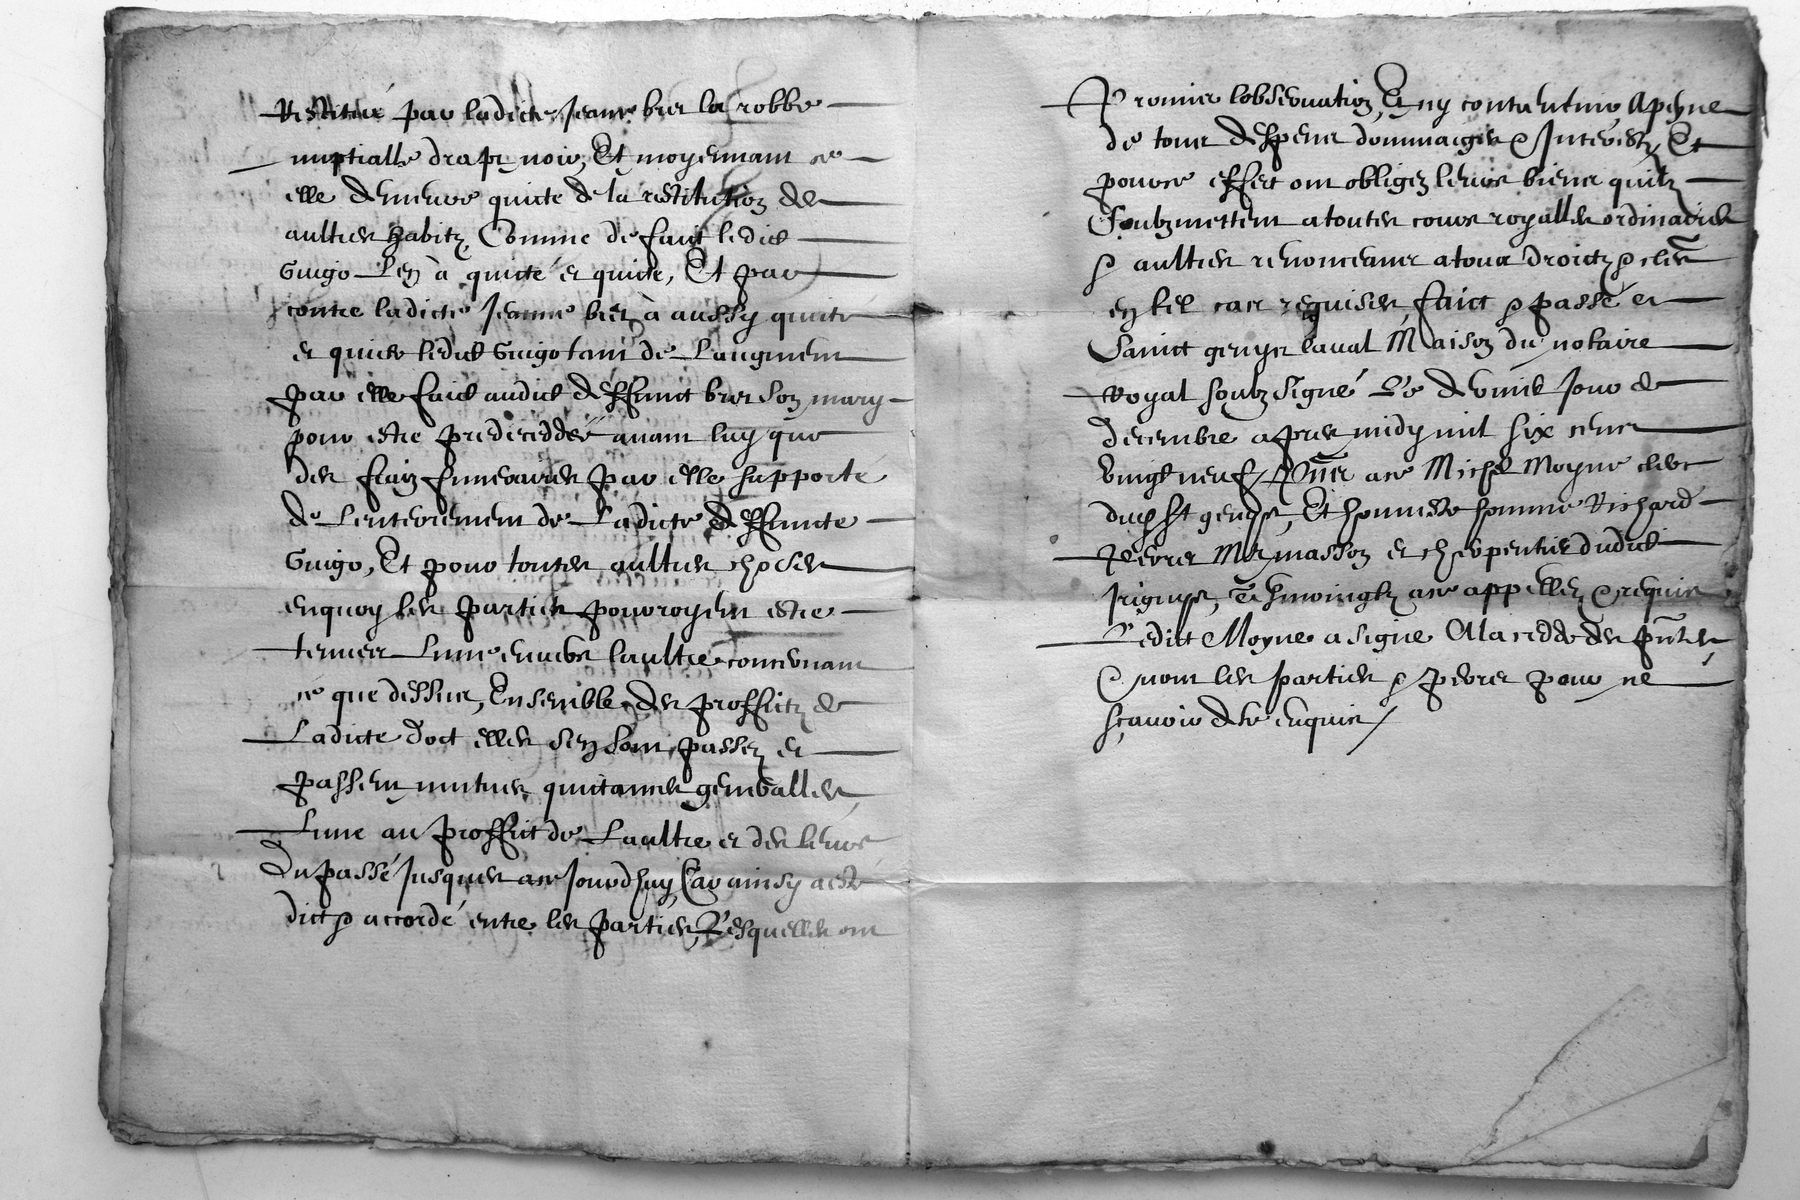 Restitué par ladicte Jeanne bier la robbe
nuptialle drapt noir, Et moyennant ce
elle demeure quicte de la restitution des
aultres habitz, Comme de faict ledict
Guigo Len à quicté et quicte, Et par
contre ladicte Jeanne bier à aussy quicté
et quicte ledict Guigo tant de Laugment
par elle faict audict deffunct bier son mary
pour estre predeceddé avant luy que
des fraiz funeraires par elle supporté
de Lenterrement de Ladicte deffuncte
Guigo, Et pour toutes aultres choses
enquoy les parties pourroyent estre
tenues Lune envers laultre concernant
ce que dessus, Ensemble des proffictz de
Ladicte doct elles sen sont passez et
passent mutues quictances generalles
Lune au proffict de Laultre et des leurs
du passé Jusques a ce Jourdhuy, Car ainsy a esté
dict & accordé entre les parties, Lesquelles ont
Promis lobservation, Et ny contrevenir Apeyne
de tous despens dommaiges & Interestz, Et
pource effect ont obligez leurs biens quilz
Soubzmettent a toutes cours royalles ordinaires
& aultres renonceans a tous droictz &
en tel cas requises, faict & passé et
Sainct genys laval Maison du notaire
Royal soubzsigné Le Jour de
decembre apres midy mil six cens
vingt neuf, a ce Michel Moyne clerc
dudit St genys, Et honneste homme Richard
Pevrer Me masson et charpentier dudict
Irigny, Tesmoingtz a ce appellez & requis
Ledict Moyne a signé A la cedde des pntes,
& non les parties & pevrer pour ne
sçavoir de ce enquis /